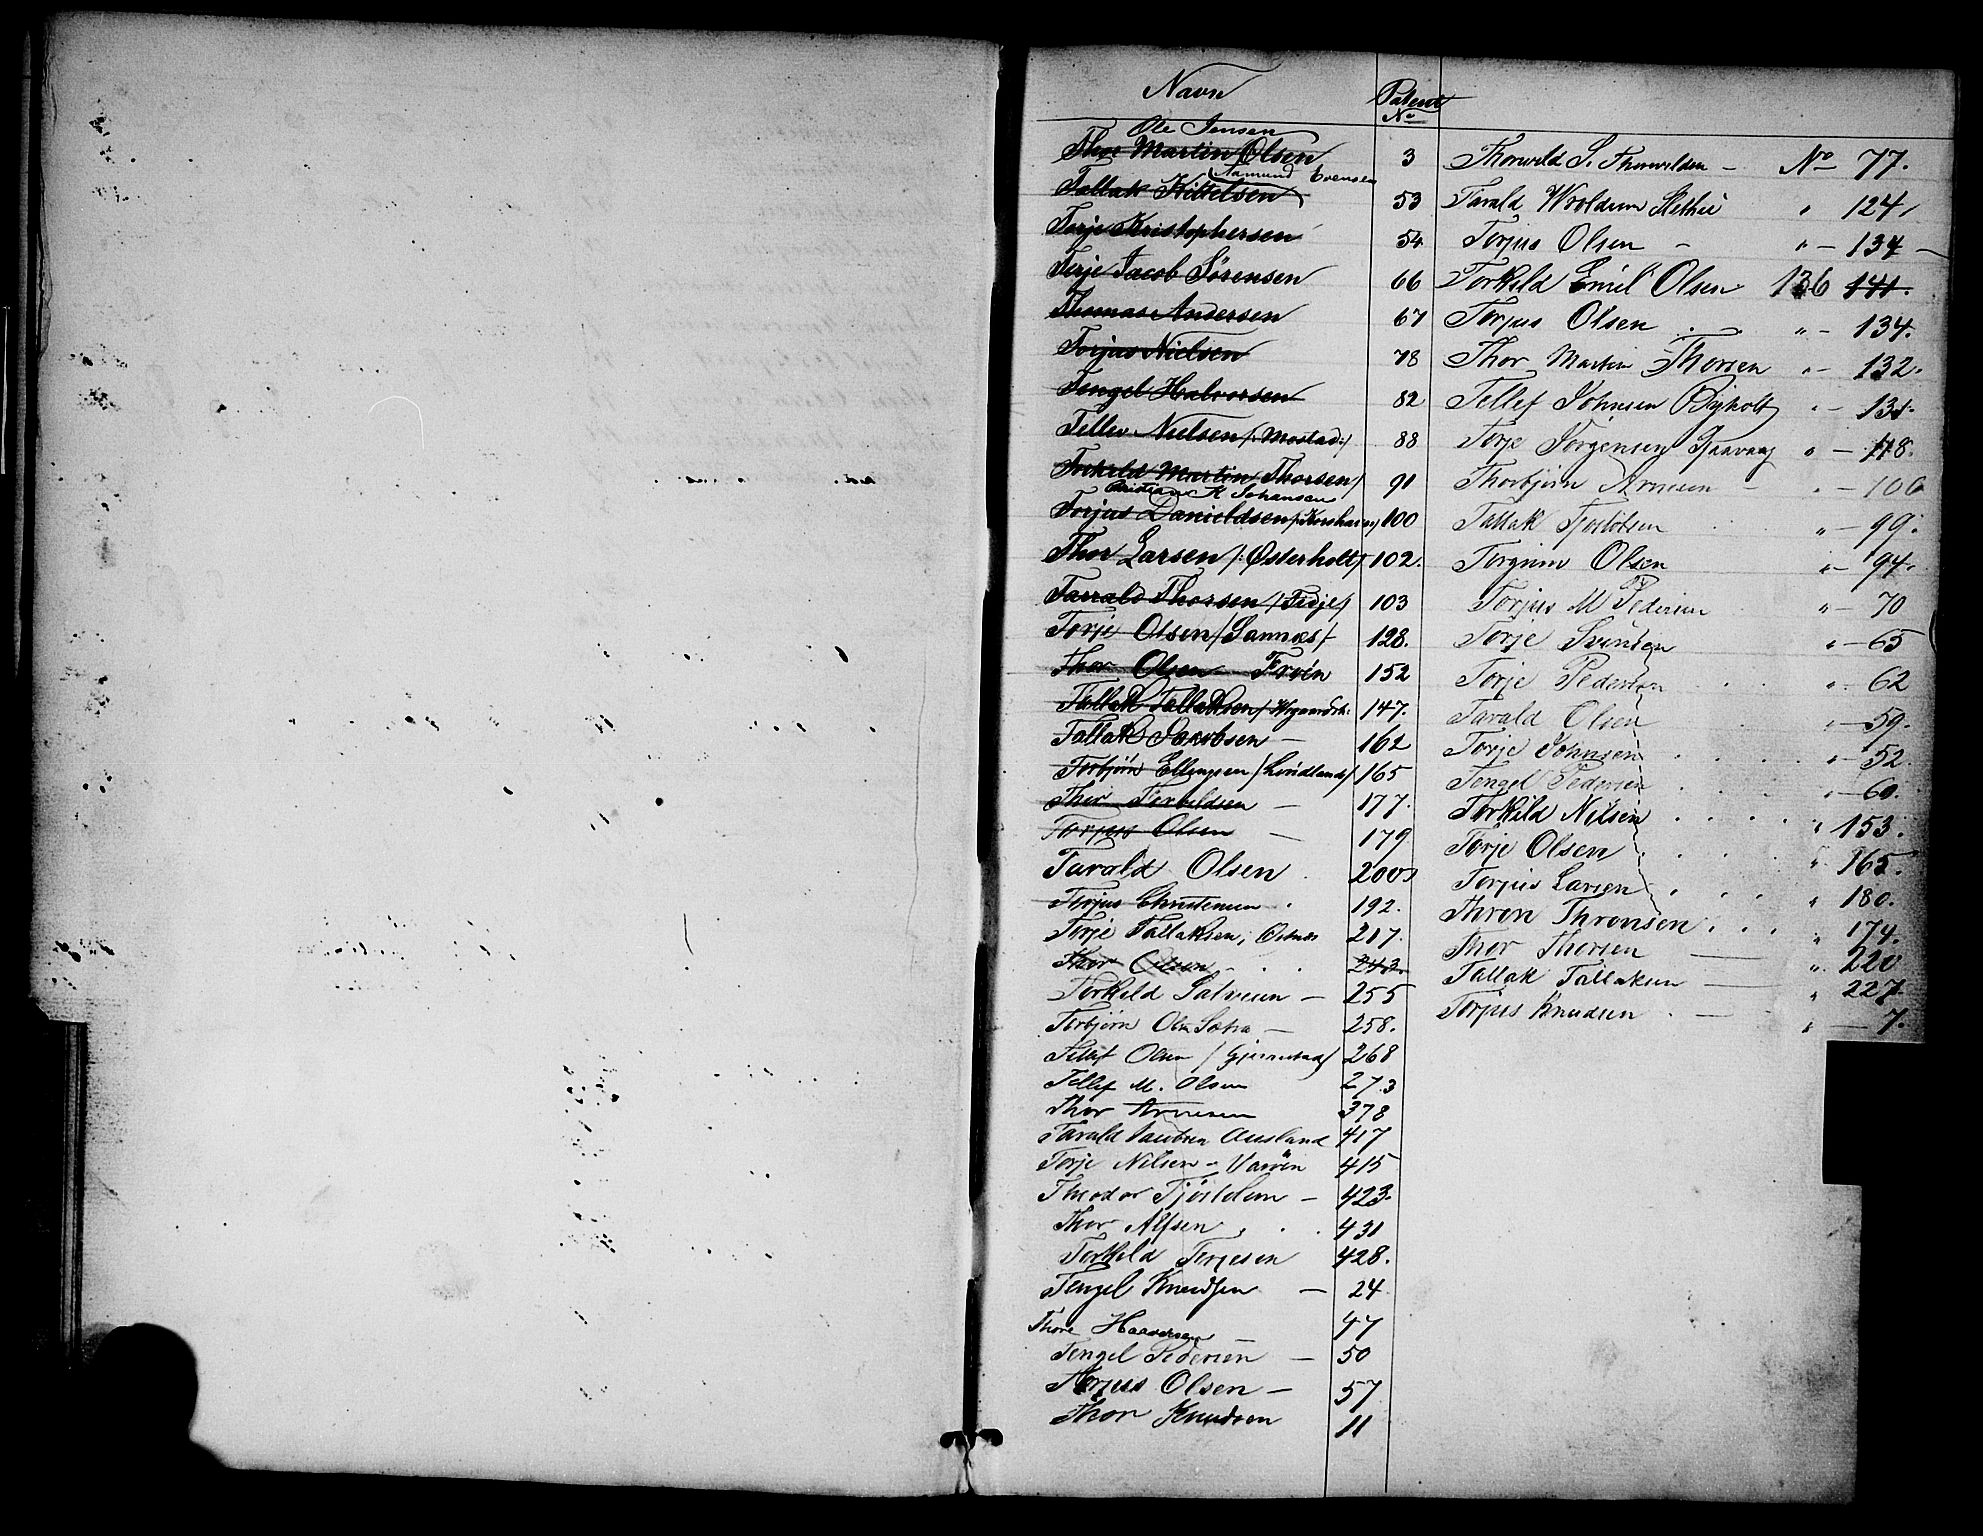 Navn
Patent
No
Ole Jensen
Thor Martin Olsen 3
Aamund Evensen
Tallak Kittelsen 53
Terje Kristophersen 54
Terje Jacob Sørensen 66
Thomas Andersen 67
Torjus Nielsen 78
Tengel Halvorsen 82
Tellev Nielsen /: Mostad :/ 88
Torkild Martin Thorsen / 91
Christian K Johansen
Torjus Danieldsen /: Korshavn / 100
Thor Larsen /: Østerholt / 102.
Tarrald Thorsen / Tedje / 103
Torje Olsen / Sannæs / 128.
Thor Olsen Frøen 152
Tallak Tallaksen / 147.
Tallak Jacobsen — 162
Torbjørn Ellingsen / Lindland / 165
Thor Terkildsen — 177.
Torjus Olsen — 179
Tarald Olsen . 200
Torjus Christensen . 192.
Torje Tallaksen, 217.
Thor Olsen . . 243.
Torkild Salvesen — 255
Torbjørn Olsen — 258.
Tellef Olsen / Gjernestad / 268
Tellef M. Olsen 273
Thor Arnesen 378
Tarald Jacobsen Ausland 417
Torje Nilsen - 415
Theodor — 423.
Thor Alfsen . . 431
Torkild Terjesen 428.
Tengel Knudsen — 24
Thore Haaversen 47
Tengel Pedersen — 50
Torjus Olsen — 57
Thor Knudsen 11
Thorvild S. Thorvildsen — No 77.
Tarald Wroldsen " 124
Torjus Olsen — " — 134 —
Torkild Emil Olsen 136 141.
Torjus Olsen . . " — 134.
Thor Martin Thorsen " — 132.
Tellef Johnsen Bjyholt " — 131.
Torje Jørgensen " — 118.
Thorbjørn Arnesen — " — 106
Tallak " — 99.
Torgrim Olsen " — 94.
Torjus M Pedersen " — 70
Torje Svendsen " — 65
Torje Pedersen . . " 62
Tarald Olsen " — 59.
Torje Johnsen . . . " — 52.
Tengel Pedersen . . . " — 60.
Torkild Nilsen . . . . " 153.
Torje Olsen . . . . " 165.
Torjus Larsen . . . " 180.
Thron Thronsen . . . " 174.
Thor Thorsen — " 220
Tallak Tallaksen — " 227
Torjus Knudsen . — " — 7.